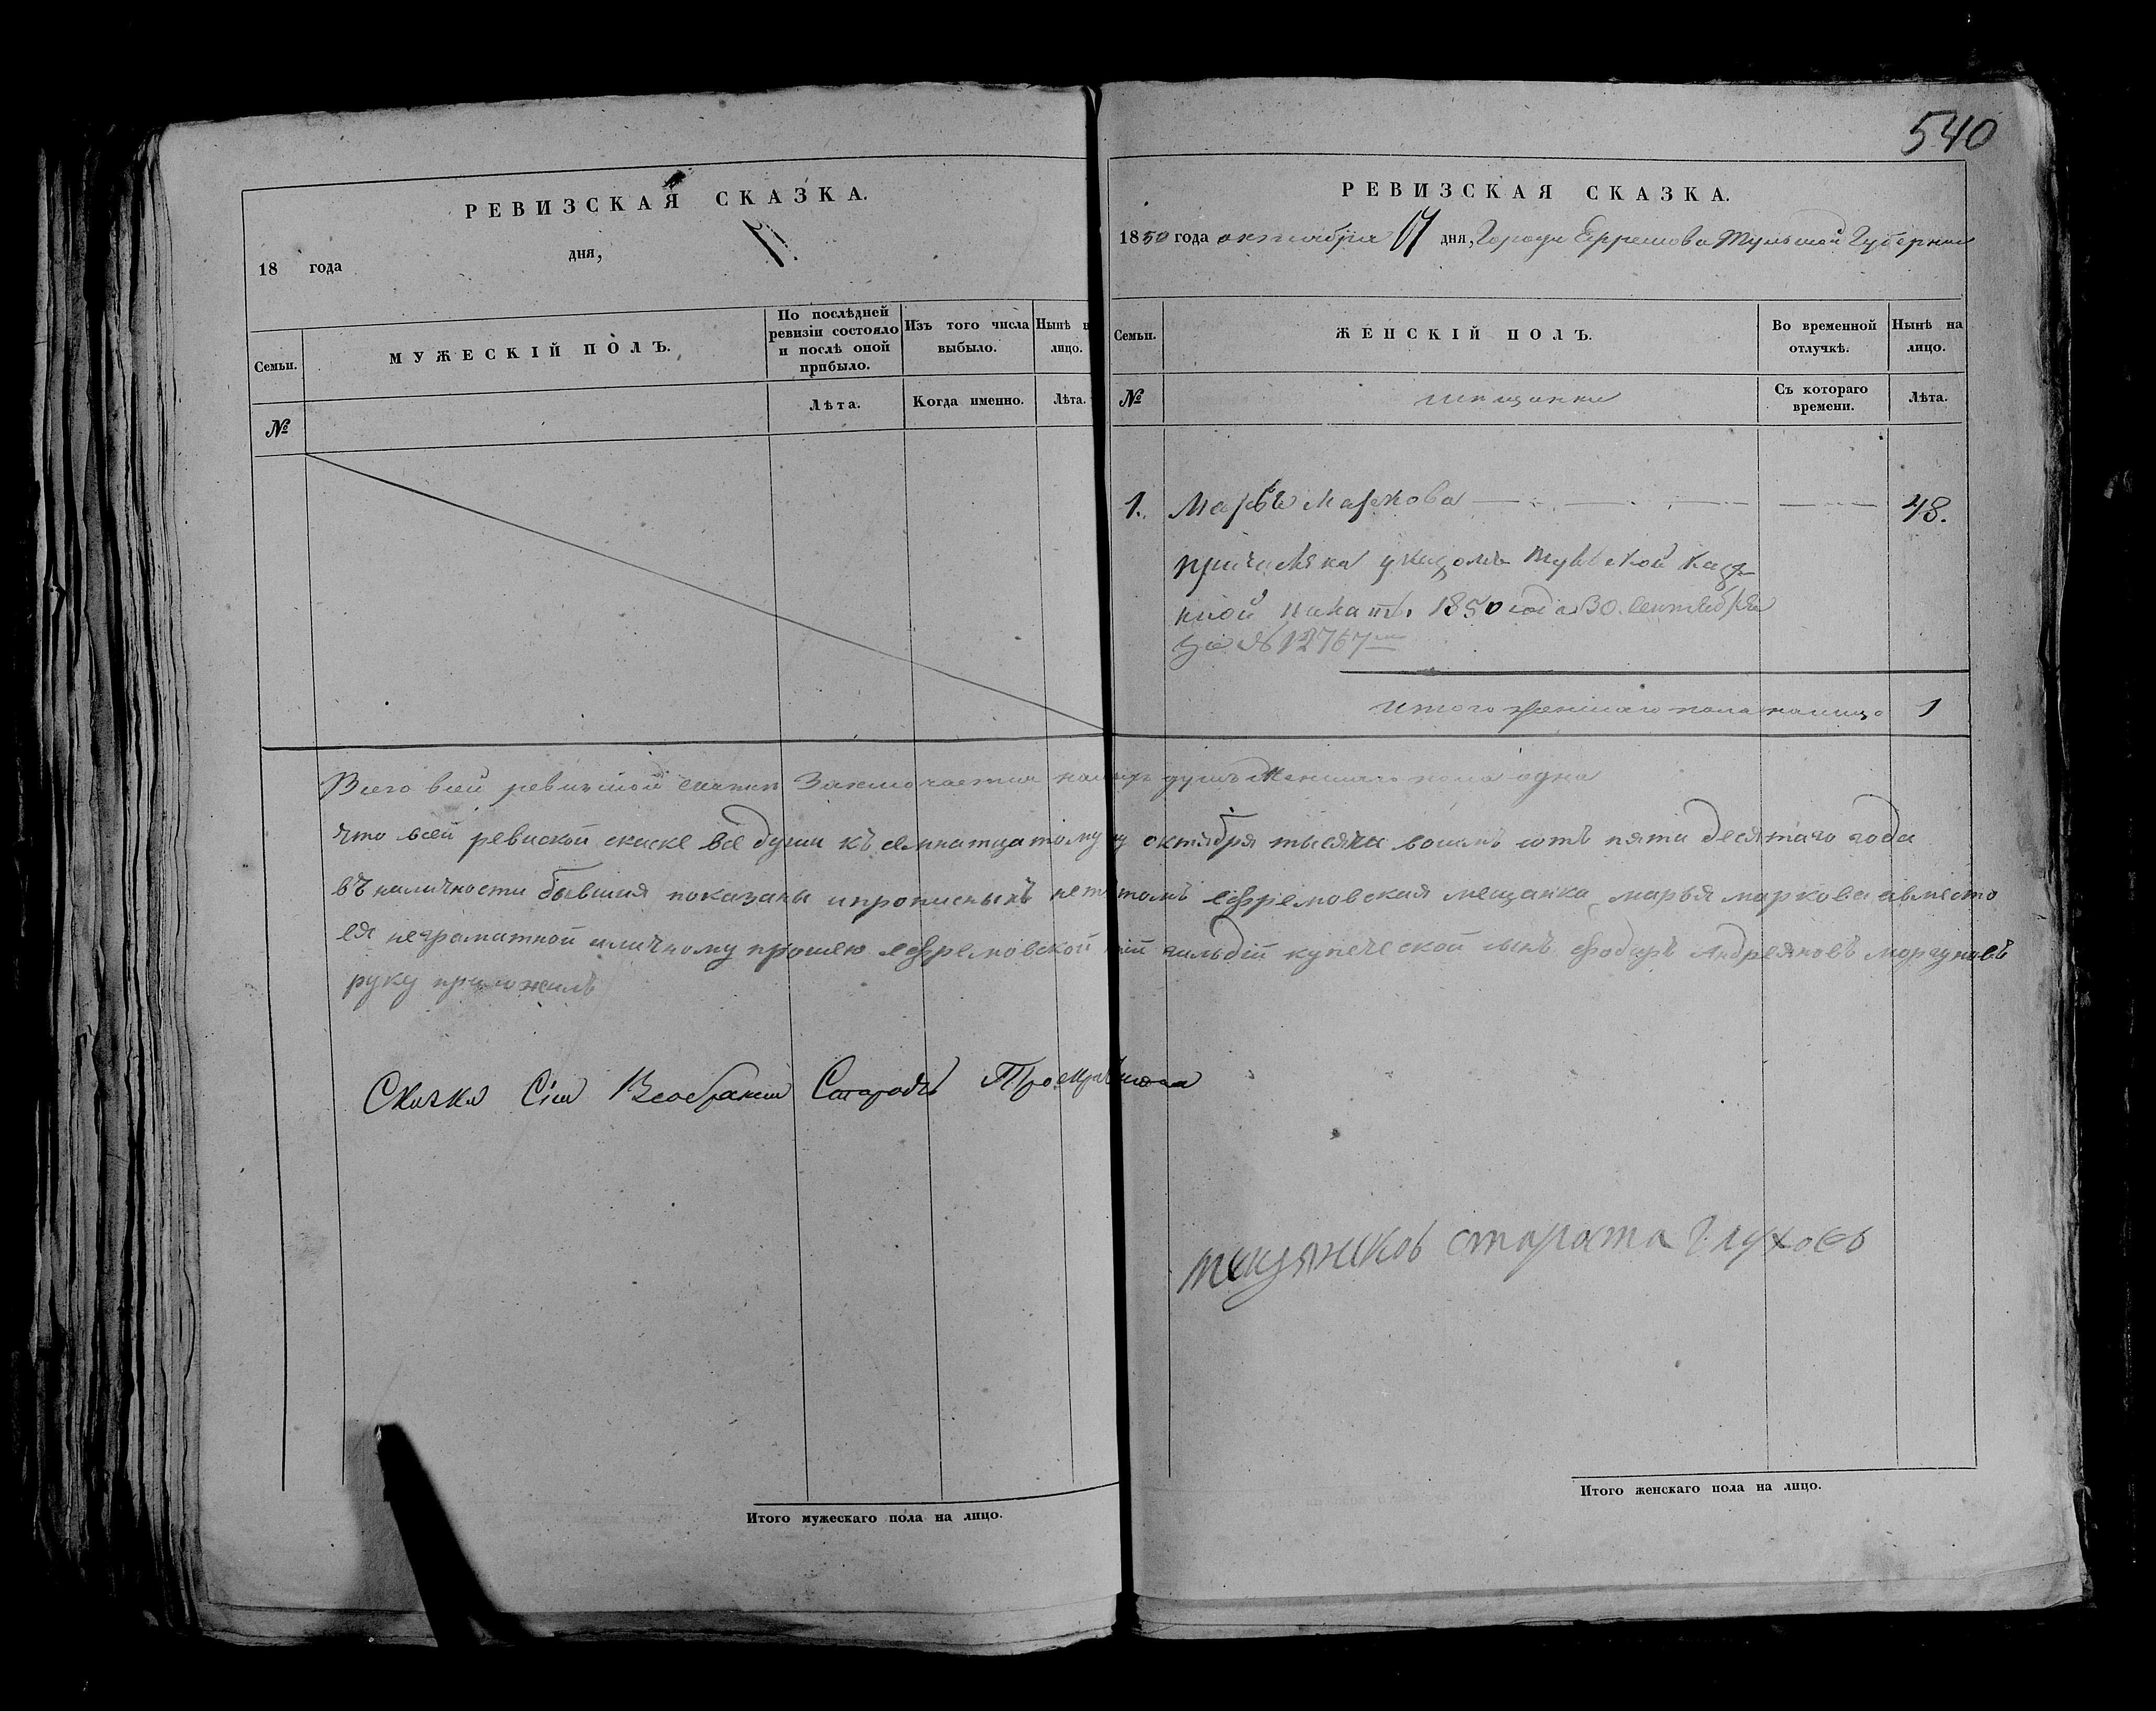 РЕВИЗСКАЯ СКАЗКА.
18 года дня,
Семьи.
МУЖЕСКІЙ ПОЛЪ.
По послѣдней ревизіи состояло и послѣ оной прибыло.
Изъ того числа выбыло.
Нынѣ на лицо.
№
Лѣта.
Когда именно.
Лѣта.
Итого мужескаго пола на лицо.
540
РЕВИЗСКАЯ СКАЗКА.
1850 года октября 17 дня, Города Ефремова Тульской Губернии
Семьи.
ЖЕНСКІЙ ПОЛЪ.
Во временной отлучкѣ.
Нынѣ на лицо.
№
мещанки
Съ котораго времени.
Лѣта.
1. Марья Маркова 48.
причислена указомъ Тульской Казен
ной палаты 1850 года 30. Сентября
за № 12767
Итого женскаго пола налицо 1
Всего всей ревизской сказки Заключается налицо душъ женскаго пола одна
что всей ревиской скаске все души къ семнатцатому ч октября тысяча восимъ сотъ пяти десятаго года
въ наличности бывшия показаны и прописныхъ нетъ томъ ефремовская мещанка марья маркова авместо
ея неграматной иличному прошению ефремовской гильдій купеческой сынъ фодоръ Андреяновъ моргуновъ
руку приложилъ
Скаски Сіи
мещянсков стараста Глухов
Итого женскаго пола на лицо.